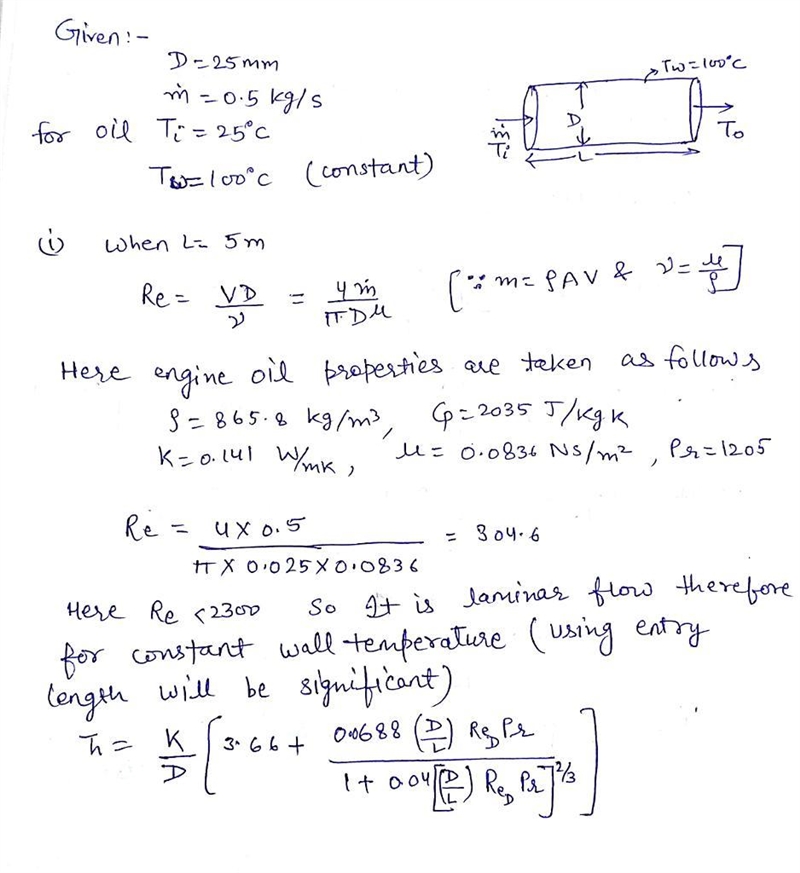 Given:-
D=25mm
ṁ = 0.5 kg/s
for oil Ti = 25°C
Tw=100°C (constant)
Tw=100°C
D
ṁ
Ti
L
To
(i) when L= 5m
Re = VD/ν = 4ṁ/πDμ [∵ m = ρAV & ν = μ/ρ]
Here engine oil properties are taken as follows
ρ = 865.8 kg/m³, Cp=2035 J/kgK
K=0.141 W/mK, μ = 0.0836 NS/m², Pr=1205
Re = 4X0.5/πX0.025X0.0836 = 304.6
Here Re <2300 So It is laminar flow therefore
for constant wall temperature (using entry
length will be significant)
h̄ = K/D [3.66 + 0.0688 (D/L) Re_D Pr / 1+0.04[(D/L) Re_D Pr]^2/3]